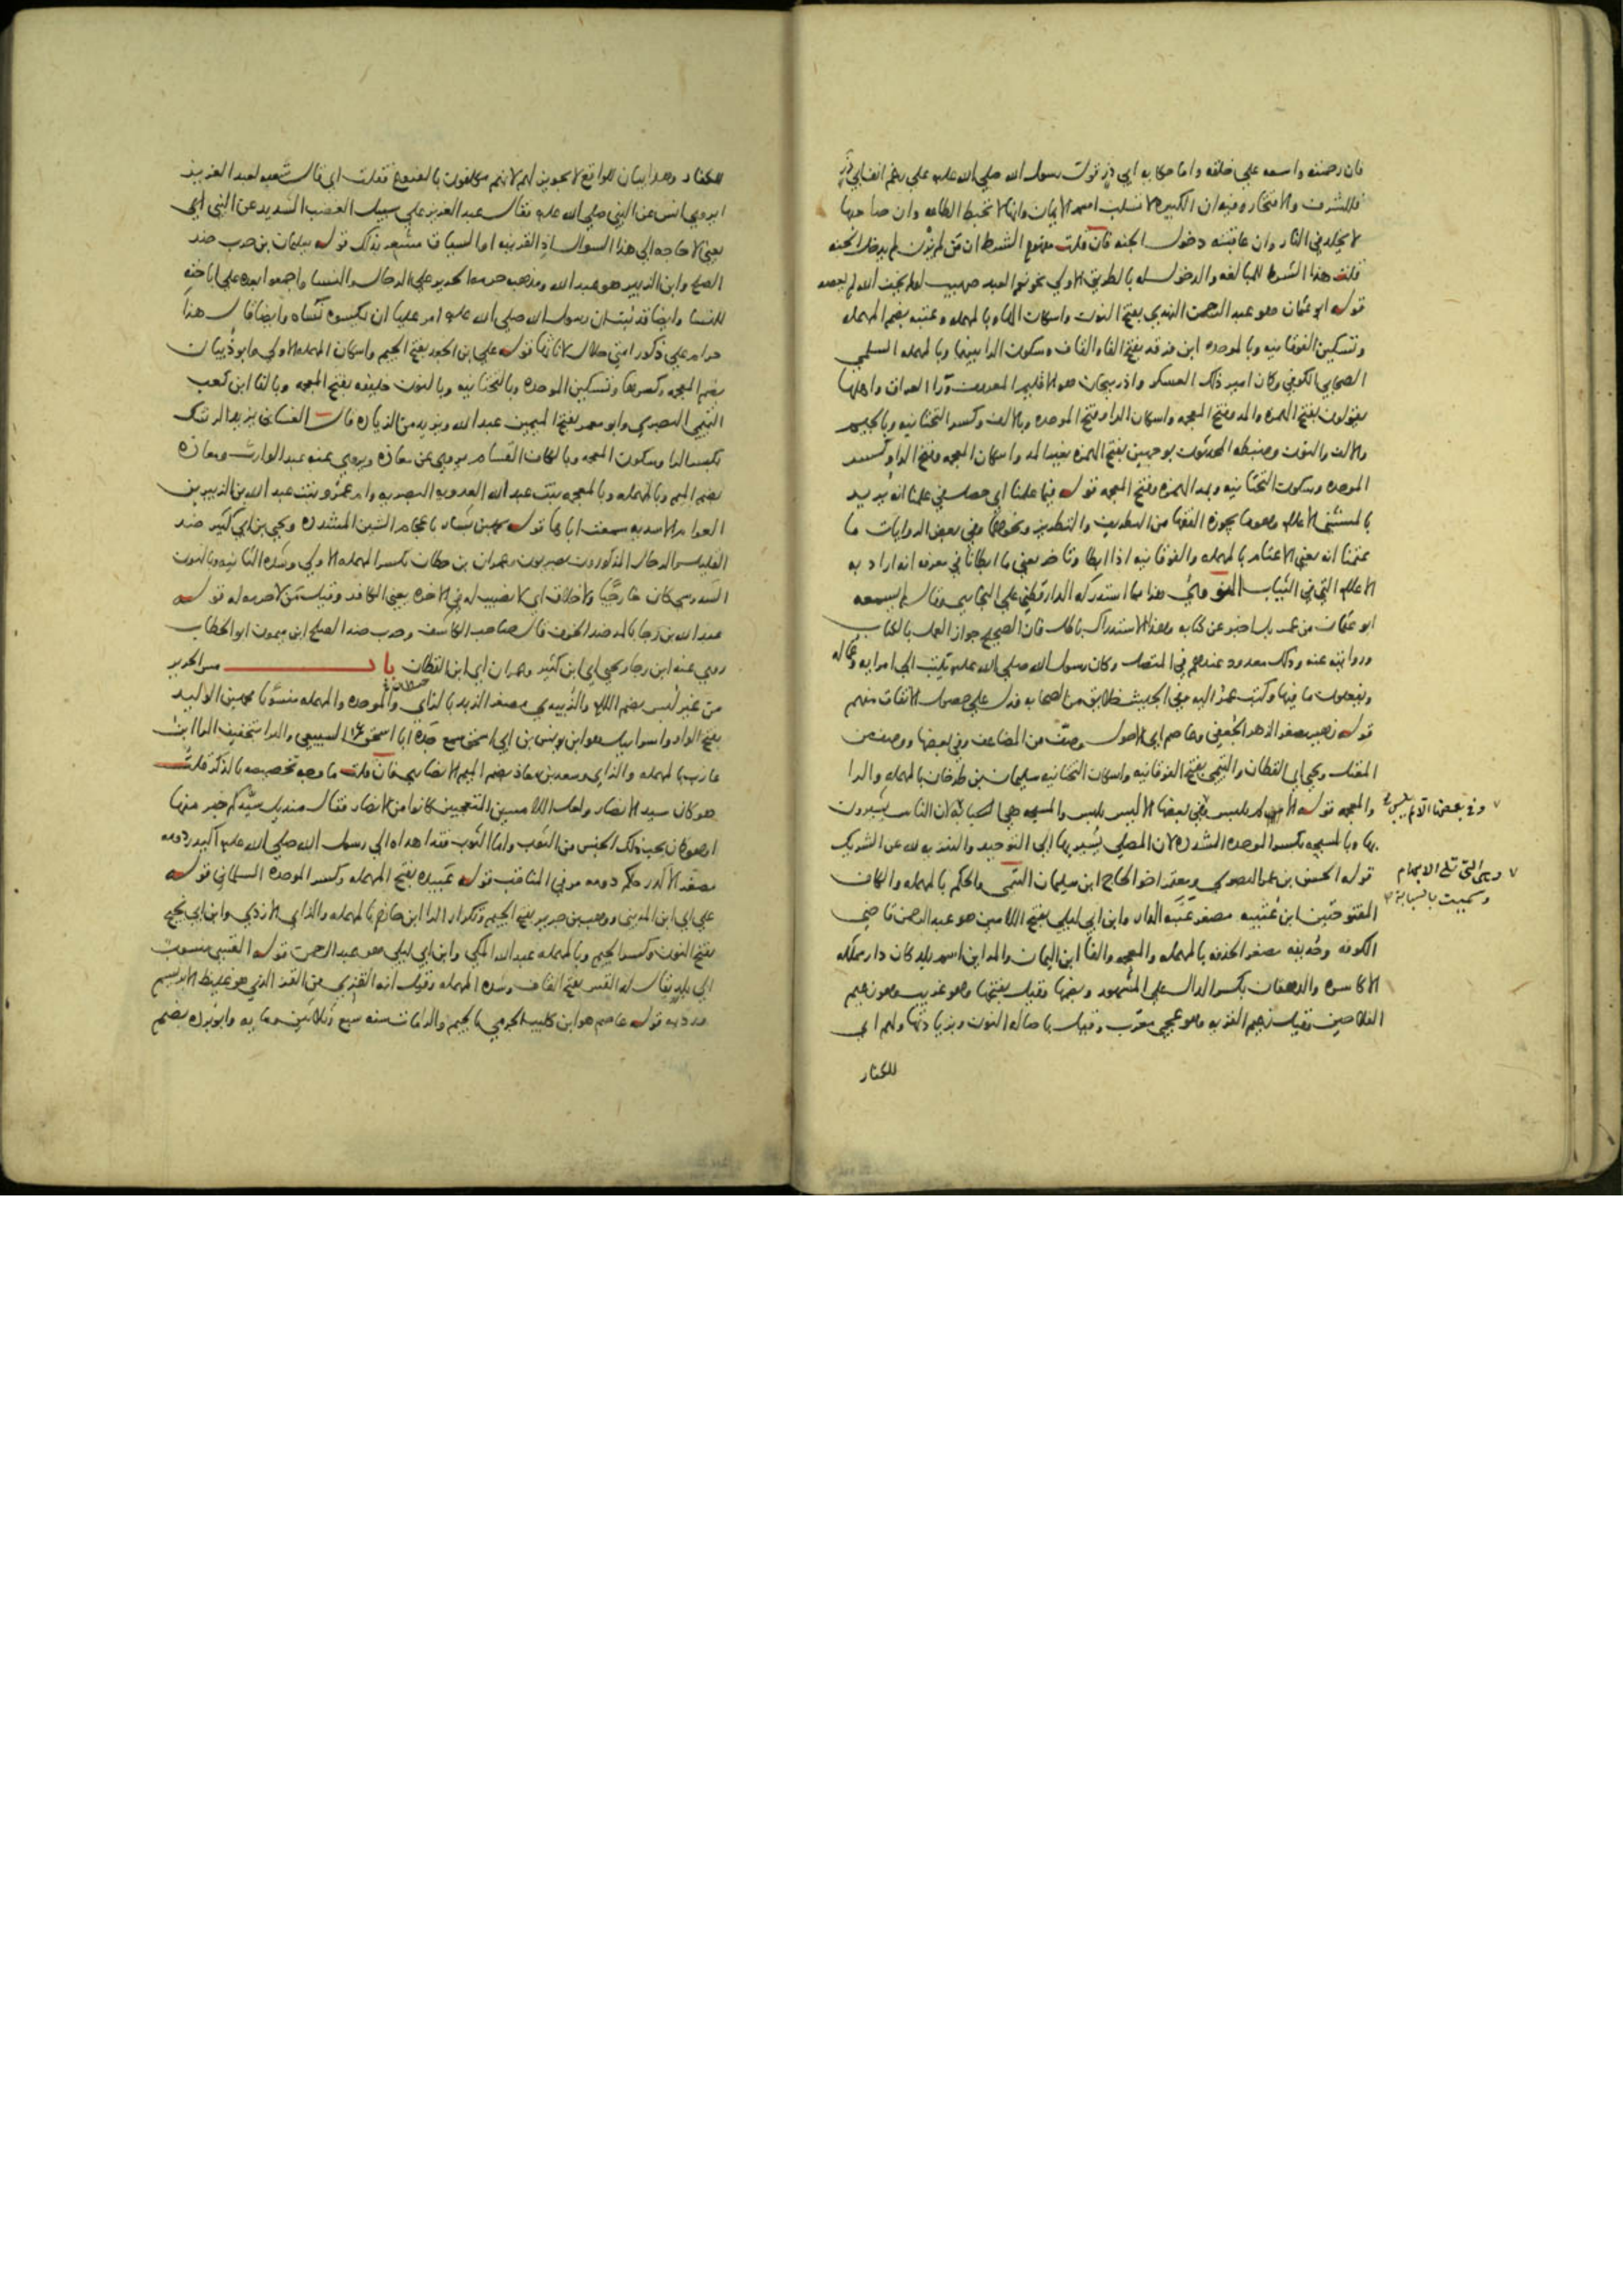 فان رحمته واسعة علي خلقه واما حكايه ابي ذر قول رسول الله صلي الله عليه علي رغم انف ابي ذر
فللشرف والافتخار وفيه ان الكبيره لا تسلب اسم الايمان وانها لا تحبط الطاعه وان صاحبها
لا يخلد في النار وان عاقبته دخول الجنه فان قلت مفهوم الشرط ان من لم يزن لم يدخل الجنه
قلت هذا الشرط للمبالغه والدخول له بالطريق الاولي نحو نعم العبد صهيب لو لم يخف الله لم يعصه
قوله ابو عثمان هو عبد الرحمن النهدي بفتح النون واسكان الها وبالمهمله وعتبه بضم المهمله
وتسكين الفوقانيه وبالموحده ابن فرقد بفتح الفا والقاف وسكون الرا بينهما وبالمهمله السلمي
الصحابي الكوفي وكان امير ذلك العسكر واذربيجان هو الاقليم المعروف ورا العراق واهلها
يقولون بفتح الهمزه والمد وفتح المعجمه واسكان الرا وفتح الموحده وبالالف وكسر التحتانيه وبالجيم
والالف والنون وضبطه المحدثون بوجهين بفتح الهمزه بغير المد واسكان المعجمه وفتح الرا وكسر
الموحده وسكون التحتانيه وبمد الهمزه وفتح المعجمه قوله فيما علمنا اي حصل في علمنا انه يريد
بالمستثنى الاعلام وهو ما يجوزه الفقها من التطريف والتطريز ونحوهما وفي بعض الروايات ما
عتمنا انه يعني الاعتام بالمهمله والفوقانيه اذا ابطا وتاخر يعني ما ابطانا في معرفه انه اراد به
الاعلام التي في الثياب النووي هذا مما استدركه الدارقطني علي البخاري وقال لم يسمعه
ابو عثمان من عمر بل اخبر عن كتابه وهذا الاستدراك باطل فان الصحيح جواز العمل بالكتاب
وروايته عنه وذلك معدود عندهم في المتصل وكان رسول الله صلي الله عليه يكتب الي امرايه وعماله
ويفعلون ما فيها وكتب عمر اليه وفي الجيش خلايق من الصحابه فدل علي حصول الاتفاق منهم
قوله زهير مصغر الزهر الجعفي وعاصم اي الاحول وصف من المضاعف وفي بعضها ووصف من
المعتل ويحيي اي القطان والتيمي بفتح الفوقانيه واسكان التحتانيه سليمان بن طرخان بالمهمله والرا
والمعجمه قوله الا لم يلبس وفي بعضها الا ليس يلبس والمسبحه هي السبابه لان الناس يشيرون
بها وبالمسبحه بكسر الموحده المشدده لان المصلي يشير بها الي التوحيد والتنزيه لله عن الشريك
قوله الحسن بن عمر البصري ومعتمر اخو الحاج ابن سليمان التيمي والحكم بالمهمله والكاف
المفتوحتين ابن عتيبه مصغر عتبه الدار وابن ابي ليلي بفتح اللامين هو عبد الرحمن قاضي
الكوفه وحذيفه مصغر الحذفه بالمهمله والمعجمه والفا ابن اليمان والمداين اسم بلد كان دار مملكه
الاكاسره والدهقان بكسر الدال علي المشهور وبضمها وقيل بفتحها وهو غريب وهو زعيم
الفلاحين وقيل زعيم القريه وهو عجمي معرب وقيل باصاله النون وبزيادتها ولهم اي
للكفار
وفي بعضها
وهي التي تلي الابهام
وسميت بالسبابة
للكفار وهذا بيان للواقع لا تجويز لهم لانهم مكلفون بالفروع فقلت اي قال شعبه لعبد العزيز
ايروي انس عن النبي صلي الله عليه فقال عبد العزيز علي سبيل الغضب الشديد عن النبي اي
يعني لا حاجه الي هذا السوال اذ القرينه او السياق مشعر بذلك قوله سليمان بن حرب ضد
الصلح وابن الزبير هو عبد الله ومذهبه حرمه الحرير علي الرجال والنسا واجمعوا بعده علي اباحته
للنسا وايضا قد ثبت ان رسول الله صلي الله عليه امر عليا ان يكسوه نساه وايضا قال هذا
حرام علي ذكور امتي حلال لاناثها قوله علي بن الجعد بفتح الجيم واسكان المهمله الاولي وابو ذبيان
بضم المعجمه وكسرها وتسكين الموحده وبالتحتانيه وبالنون خليفه بفتح المعجمه وبالفا ابن كعب
التيمي البصري وابو معمر بفتح الميمين عبد الله ويزيد من الزياده قال الغساني يزيد الرشك
بكسر الرا وسكون المعجمه وبالكاف القسام يروي عن معاذه ويروي عنه عبد الوارث ومعاذه
بضم الميم وبالمهمله وبالمعجمه بنت عبد الله العدويه البصريه وام عمرو بنت عبد الله بن الزبير بن
العوام الاسديه سمعت اباها قوله محمد بن بشار باعجام الشين المشدده ويحيي بن ابي كثير ضد
القليل والرجال المذكورون بصريون وعمران بن حطان بكسر المهمله الاولي وشده الثانيه وبالنون
السدوسي كان خارجيا ولا خلاق اي لا نصيب له في الاخره يعني الكافر وقيل من لا حرمه له قوله
عبد الله بن رجا بالمد ضد الخوف قال صاحب الكاشف وحرب ضد الصلح ابن ميمون ابو الخطاب
روي عنه ابن رجا ويحيي اي ابن كثير وعمران اي ابن القطان باب مس الحرير
من غير لبس بضم اللام والزبيدي مصغر الزبد بالزاي والموحده والمهمله منسوبا محمد بن الوليد
بفتح الواو واسرايل هو ابن يونس بن ابي اسحق سمع جده ابا اسحق السبيعي والبرا بتخفيف الرا ابن
عازب بالمهمله والزاي وسعد بن معاذ بضم الميم الانصاري فان قلت ما وجه تخصيصه بالذكر قلت
هو كان سيد الانصار ولعل اللامسين المتعجبين كانوا من الانصار فقال منديل سيدكم خير منها
او هو كان يحب ذلك الجنس من الثوب واما الثوب فقد اهداه الي رسول الله صلي الله عليه اكيدر دومه
مصغر الاكدر ملك دومه مر في المناقب قوله عبيده بفتح المهمله وكسر الموحده السلماني قوله
علي اي ابن المديني ووهب بن جرير بفتح الجيم وتكرار الرا ابن حازم بالمهمله والزاي الازدي وابن ابي نجيح
بفتح النون وكسر الجيم وبالمهمله عبد الله المكي وابن ابي ليلي هو عبد الرحمن قوله القسي منسوب
الي بلد يقال له القس بفتح القاف وشده المهمله وقيل انه القزي من القز الذي هو غليظ الابريسم
ورديه قوله عاصم هو ابن كليب الجرمي بالجيم والرا مات سنه سبع وثلاثين ومايه وابو برده بضم